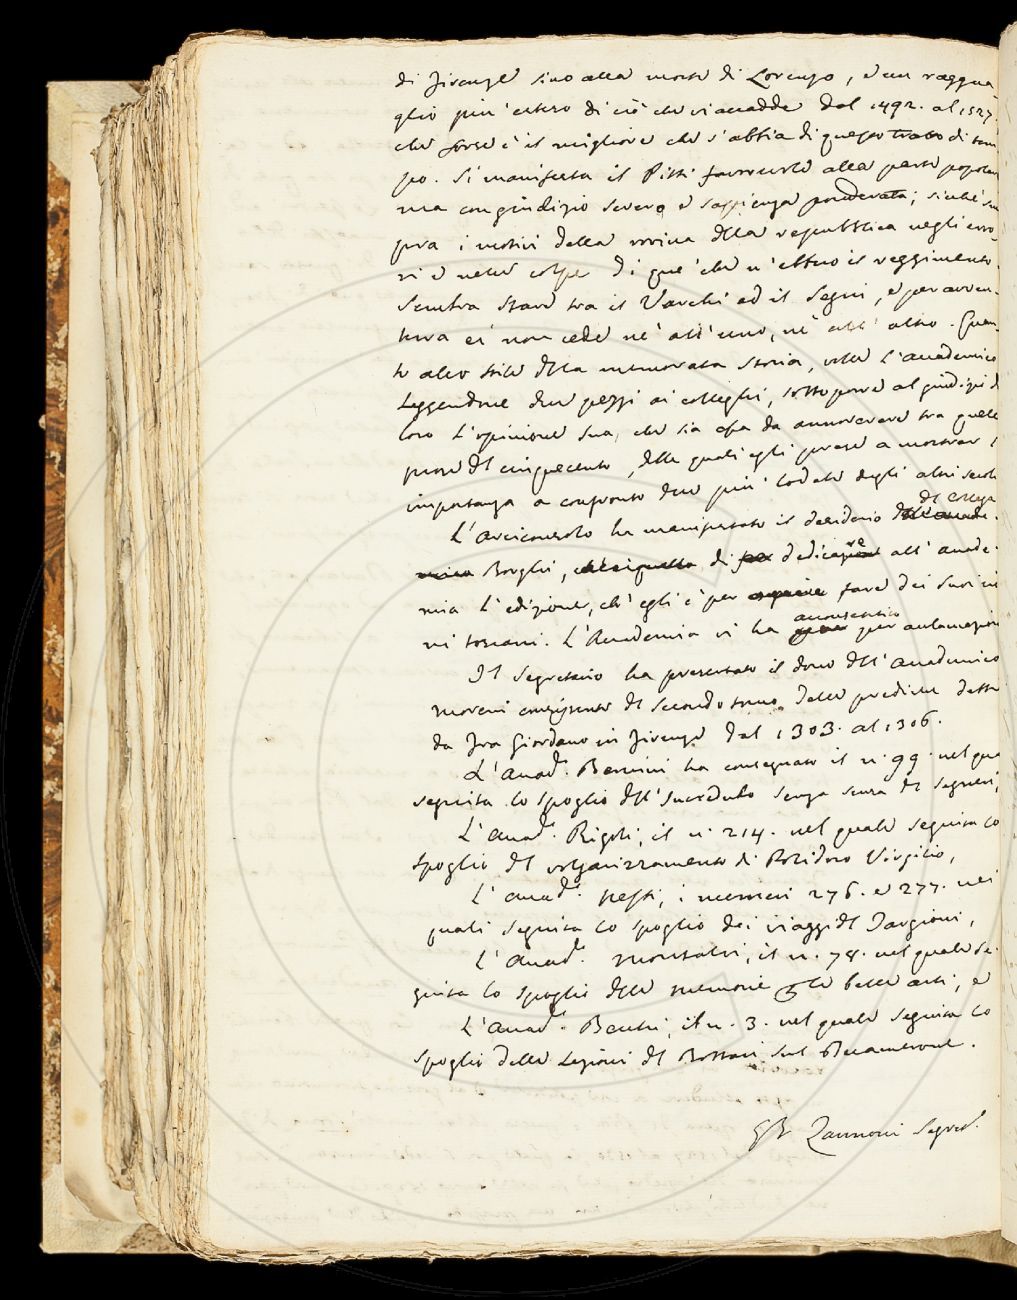 di Firenze sino alla morte di Lorenzo, e un raggua-
glio più esteso di ciò che vi accadde dal 1492. al 1527.
che forse è il migliore che s'abbia di questo tratto di tem
po. Si manifesta il Pitti favorevole alla parte popolar
ma con giudizio severo e sapienza ponderata; sicchè
pra i motivi della rovina della repubblica negli erro-
ri e nelle colpe di que' che n'ebbero il reggimento.
Sembra stare tra il Varchi ed il Segni, e per avven-
tura ei non cede nè all'uno, nè all'altro. Quan-
to allo stile della memorata storia, volle l'Accademico
Leggendone due pezzi ai colleghi, sottoporre al giudizio di
loro l'opinione sua, che sia essa da annoverare tra quelle
prose del cinquecento, delle quali egli prese a mostrar l'
importanza a confronto due più lodate degli altri secoli
L'Arciconsolo ha manifestato il desiderio del Collega
Borghi, di dedicare all'Accade-
mia l'edizione, ch'egli è per fare dei suoi in
ni toscani. L'Accademia vi ha acconsentito per acclamazione
Il Segretario ha presentato il dono dell'Accademico
Moreni consistente del secondo tomo delle prediche dette
da Fra Giordano in Firenze dal 1303. al 1306.
L'Accad. Bencini ha consegnato il n. 99. nel qua
seguita lo spoglio dell'Incredulo senza scusa del Segneri,
L'Accad. Rigoli, il n. 214. nel quale seguita lo
spoglio del volgarizzamento di Polidoro Virgilio,
L'Accad. Nesti, i numeri 276. e 277. nei
quali seguita lo spoglio dei viaggi del Targioni,
L'Accad. Montalvi, il n. 78. nel quale se-
guita lo spoglio delle memorie per le belle arti, e
L'Accad. Benci, il n. 3. nel quale seguita lo
spoglio delle Lezioni del Bottari sul Decamerone.
GB Zannoni Segret.